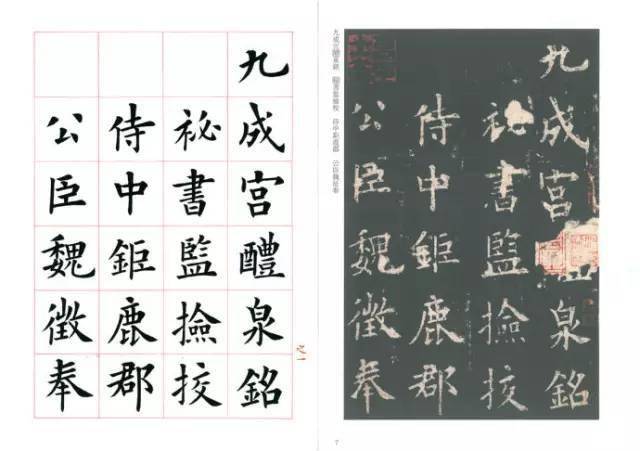 九成宮醴泉銘
祕書監撿挍
侍中鉅鹿郡
公臣魏徵奉
之一
九成宮醴泉銘 祕書監撿校 侍中鉅鹿郡 公臣魏徵奉
九成宮泉銘
祕書監撿挍
侍中鉅鹿郡
公臣魏徵奉
7